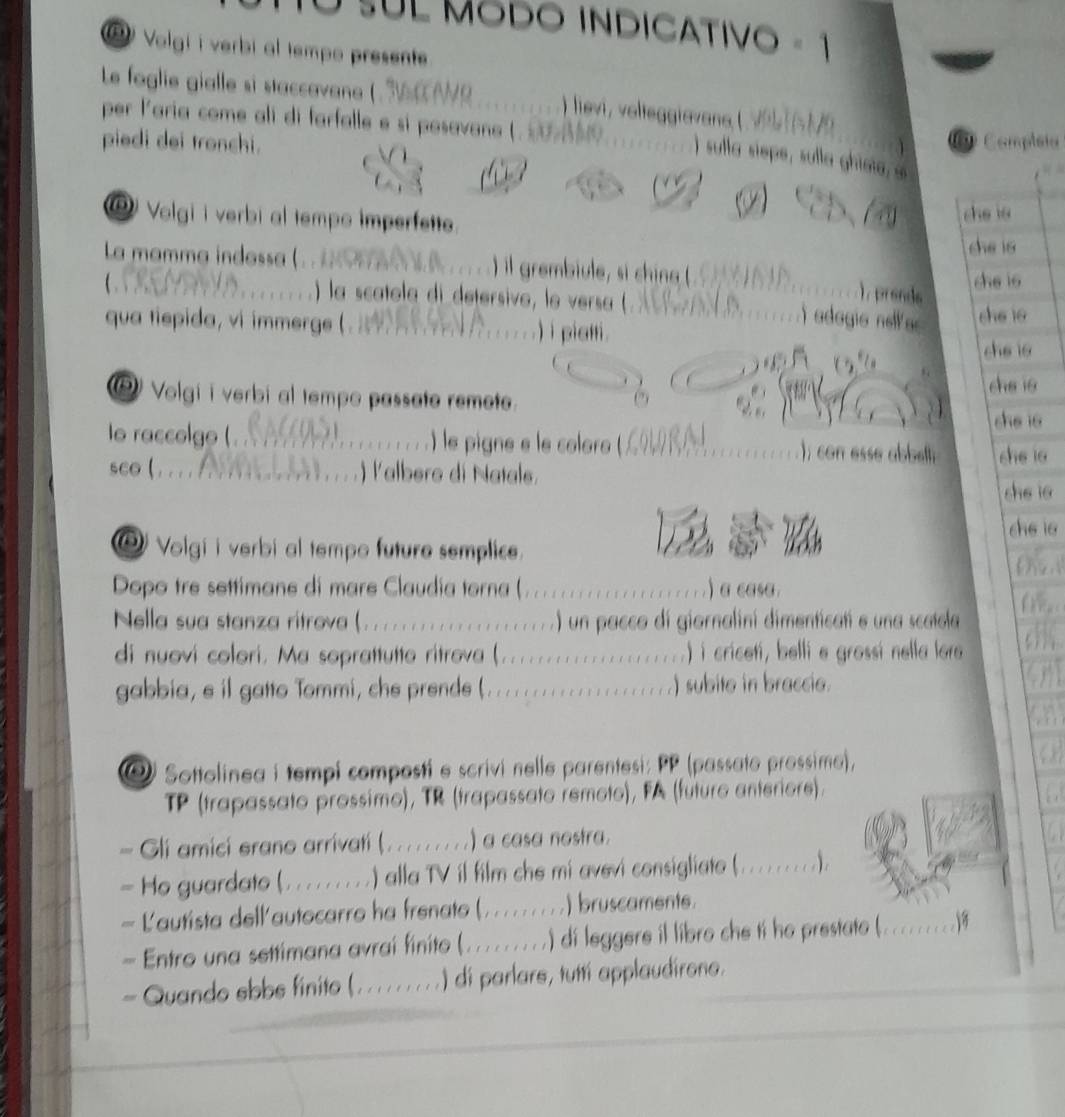 SUL MODO INDICATIVO - 1
Volgi i verbi al tempo presente.
Le foglie gialle si staccavano (. . . . . . . . . .) lievi, volteggiavano (. . . . . . . . . .)
per l'aria come ali di farfalle e si posavano (. . . . . . . . . .) sulla siepe, sulla ghiaia, ai
piedi dei tronchi.
Volgi i verbi al tempo imperfetto.
La mamma indossa (. . . . . . . . . .) il grembiule, si china (. . . . . . . . . .), prende
(. PRENDEVA . . . . . . .) la scatola di detersivo, lo versa (. . . . . . . . . .)
qua tiepida, vi immerge (. IMMERGEVA . . . . . .) i piatti.
adagio nell'ac
Volgi i verbi al tempo passato remoto.
Io raccolgo (. . RACCOLSI . . . . . . . . .) le pigne e le coloro (. COLORAI . . . . . . . . .); con esse abbelli-
sco (. . . . ABBELLII . . . .) l'albero di Natale.
Volgi i verbi al tempo futuro semplice.
Dopo tre settimane di mare Claudia torna (. . . . . . . . . . . . . . . . . . . . .) a casa.
Nella sua stanza ritrova (. . . . . . . . . . . . . . . . . . . . .) un pacco di giornalini dimenticati e una scatola
di nuovi colori. Ma soprattutto ritrova (. . . . . . . . . . . . . . . . . . . . .) i criceti, belli e grossi nella loro
gabbia, e il gatto Tommi, che prende (. . . . . . . . . . . . . . . . . . . . .) subito in braccio.
Sottolinea i tempi composti e scrivi nelle parentesi: PP (passato prossimo),
TP (trapassato prossimo), TR (trapassato remoto), FA (futuro anteriore).
– Gli amici erano arrivati (. . . . . . . . .) a casa nostra.
– Ho guardato (. . . . . . . . .) alla TV il film che mi avevi consigliato (. . . . . . . . .).
– L'autista dell'autocarro ha frenato (. . . . . . . . .) bruscamente.
– Entro una settimana avrai finito (. . . . . . . . .) di leggere il libro che ti ho prestato (. . . . . . . . .)?
– Quando ebbe finito (. . . . . . . . .) di parlare, tutti applaudirono.
Completa
che io
che io
che io
che io
che io
che io
che io
che io
che io
che io